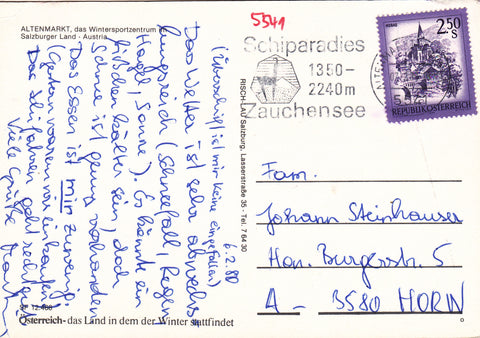 ALTENMARKT, das Wintersportzentrum
Salzburger Land - Austria
5541
Schiparadies
1350-
2240m
Zauchensee
2.50 S
MURAU
REPUBLIK ÖSTERREICH
RISCH-LAU Salzburg, Lasserstraße 35 - Tel. 7 64 30
6.2.80
(Überschrift ist mir keine eingefallen)
Das Wetter ist sehr abwechs-
lungsreich (Schneefall, Regen,
Hagel, Sonne). Es könnte ein
bißchen kälter sein, doch
Schnee ist genug vorhanden.
Das Essen ist mir zuwenig.
(Gestern waren wir einkaufen)
Das Schifahren geht recht gut.
Viele Grüße
Fam.
Johann Steinhauser
Han. Burgerstr. 5
A - 3580 HORN
12.486
Österreich - das Land in dem der Winter stattfindet